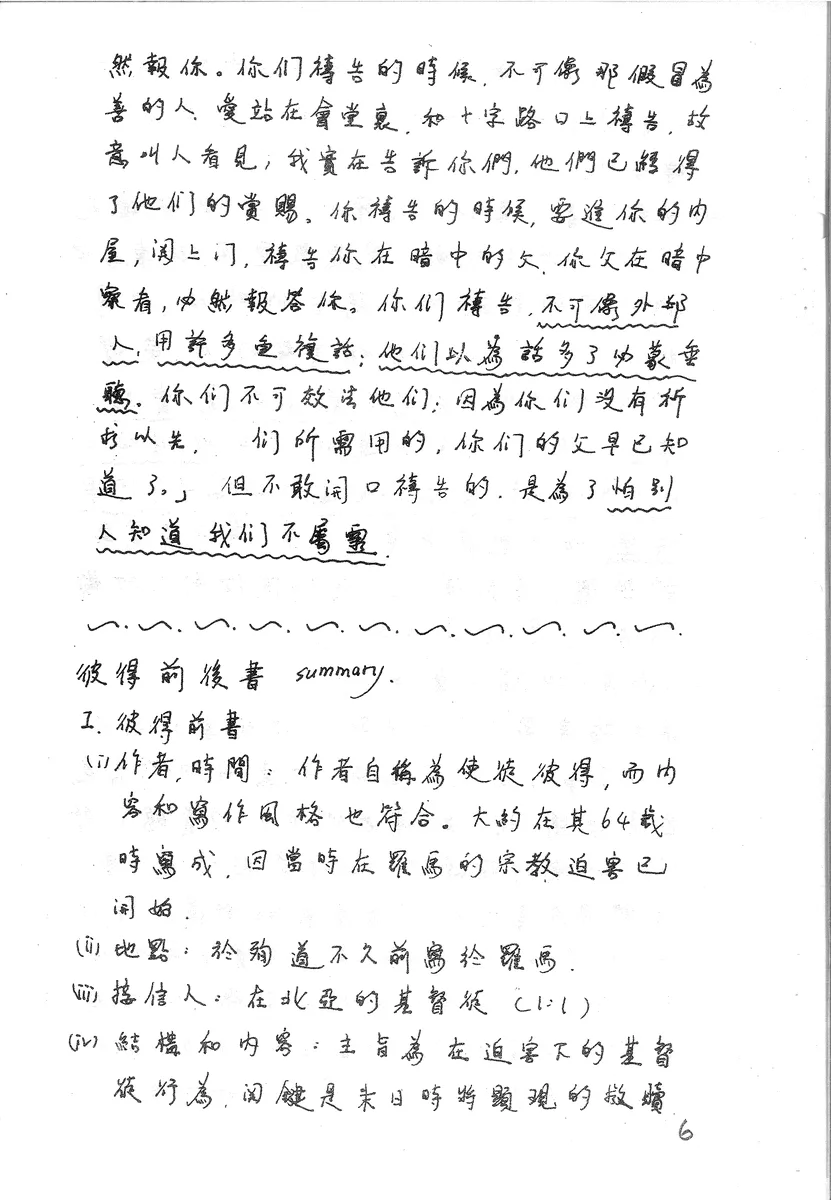 然報你。你们禱告的時候，不可像那假冒為
善的人，愛站在會堂裏，和十字路口上禱告，故
意叫人看見；我實在告訴你們，他們已經得
了他们的賞賜。你禱告的時候，要進你的内
屋，関上门，禱告你在暗中的父，你父在暗中
察看，必然報答你。你们禱告，不可像外邦
人，用許多重復話；他们以為話多了必蒙垂
聽。你们不可效法他们；因為你们没有祈
求以先，们所需用的，你们的父早已知
道了。」但不敢開口禱告的，是為了怕别
人知道我们不屬靈．
彼得前後書 summary.
I. 彼得前書
(i) 作者，時間：作者自稱為使徒彼得，而内
容和寫作風格也符合。大約在其64歲
時寫成，因當時在羅馬的宗教迫害已
開始．
(ii) 地點：於殉道不久前寫於羅馬．
(iii) 接信人：在北亞的基督徒 (1:1)
(iv) 結構和内容：主旨為在迫害下的基督
徒行為，関鍵是末日時將顯現的救贖
6